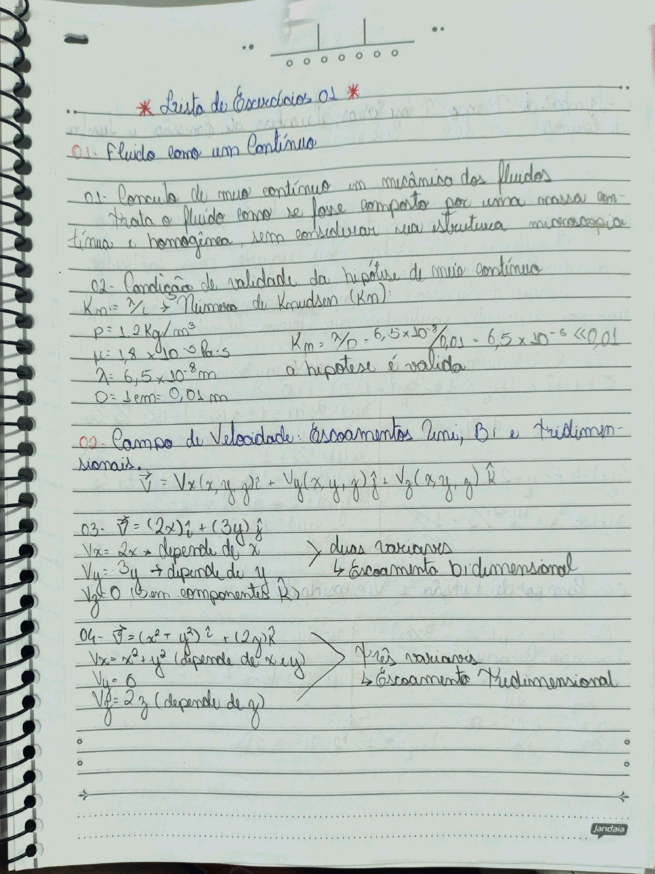 * Lista de Exercícios 01 *
01- Fluido como um Contínuo
01- Conceito de meio contínuo em mecânica dos fluidos
trata o fluido como se fosse composto por uma massa con-
tínua e homogênea, sem considerar sua estrutura microscopia
02- Condição de validade da hipótese de meio contínuo
Km = λ/L → Número de Knudsen (Km):
ρ = 1.2 Kg/m³
μ = 1,8 x 10⁻⁵ Pa·s
Km = λ/D = 6,5 x 10⁻⁸/0,01 = 6,5 x 10⁻⁶ << 0,01
λ = 6,5 x 10⁻⁸ m
a hipótese é valida
D = 1cm = 0,01 m
02- Campo de Velocidade: Escoamentos Uni, Bi e tridimen-
sionais.
V⃗ = Vx(x, y, z)î + Vy(x, y, z)ĵ + Vz(x, y, z) k̂
03- V⃗ = (2x)î + (3y)ĵ
Vx = 2x → depende de x
> duas variaves
Vy = 3y → depende de y
↳ Escoamento bidimensional
Vz = 0 (sem componentes k̂)
04- V⃗ = (x² + y²) î + (2z)k̂
Vx = x² + y² (depende de x e y)
três variaves
Vy = 0
↳ Escoamento Tridimensional
Vz = 2z (depende de z)
Jandaia